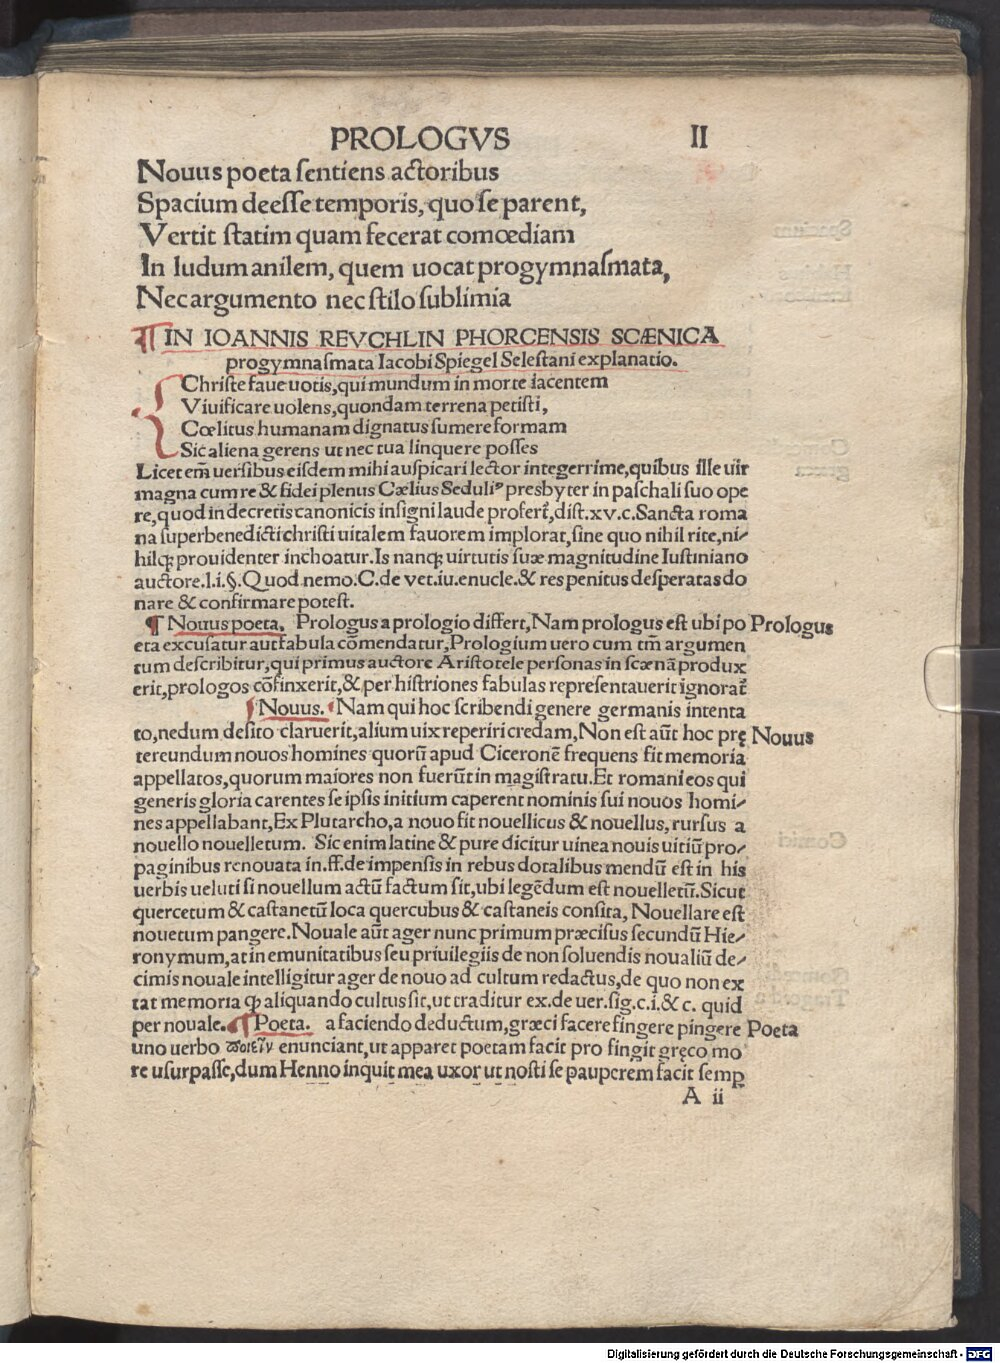 PROLOGVS II
Nouus poeta ſentiens actoribus
Spacium deeſſe temporis, quo ſe parent,
Vertit ſtatim quam fecerat comœdiam
In ludum anilem, quem uocat progymnaſmata,
Nec argumento nec ſtilo ſublimia
¶ IN IOANNIS REVCHLIN PHORCENSIS SCÆNICA
progymnaſmata Iacobi Spiegel Seleſtani explanatio.
Chriſte faue uotis, qui mundum in morte iacentem
Viuificare uolens, quondam terrena petiſti,
Cœlitus humanam dignatus ſumere formam
Sic aliena gerens ut nec tua linquere poſſes
Licet em̄ uerſibus eiſdem mihi auſpicari lector integerrime, quibus ille uir
magna cum re & fidei plenus Cælius Seduliꝰ presbyter in paſchali ſuo ope
re, quod in decretis canonicis inſigni laude profert̄, diſt. xv. c. Sancta roma
na ſuperbenedicti chriſti uitalem fauorem implorat, ſine quo nihil rite, ni⸗
hilqꝫ prouidenter inchoatur. Is nanqꝫ uirtutis ſuæ magnitudine Iuſtiniano
auctore. l. i. §. Quod nemo. C. de vet. iu. enucle. & res penitus deſperatas do
nare & confirmare poteſt.
¶ Nouus poeta. Prologus a prologio differt, Nam prologus eſt ubi po Prologus
eta excuſatur aut fabula cōmendatur, Prologium uero cum tm̄ argumen
tum deſcribitur, qui primus auctore Ariſtotele perſonas in ſcænā produx
erit, prologos cōfinxerit, & per hiſtriones fabulas repreſentauerit ignorat̄
Nouus. Nam qui hoc ſcribendi genere germanis intenta
to, nedum deſito claruerit, alium uix reperiri credam, Non eſt aūt hoc prę Nouus
tereundum nouos homines quorū apud Ciceronē frequens fit memoria
appellatos, quorum maiores non fuerūt in magiſtratu. Et romani eos qui
generis gloria carentes ſe ipſis initium caperent nominis ſui nouos homi⸗
nes appellabant, Ex Plutarcho, a nouo fit nouellicus & nouellus, rurſus a
nouello nouelletum. Sic enim latine & pure dicitur uinea nouis uitiū pro⸗
paginibus renouata in. ff. de impenſis in rebus dotalibus mendū eſt in his
uerbis ueluti ſi nouellum actū factum ſit, ubi legēdum eſt nouelletū. Sicut
quercetum & caſtanetū loca quercubus & caſtaneis conſita, Nouellare eſt
nouetum pangere. Nouale aūt ager nunc primum præciſus ſecundū Hie⸗
ronymum, at in emunitatibus ſeu priuilegiis de non ſoluendis noualiū de⸗
cimis nouale intelligitur ager de nouo ad cultum redactus, de quo non ex
tat memoria ꝙ aliquando cultus ſit, ut traditur ex. de uer. ſig. c. i. & c. quid
per nouale. ¶ Poeta. a faciendo deductum, græci facere fingere pingere Poeta
uno uerbo ποιεῖν enunciant, ut apparet poetam facit pro fingit gręco mo
re uſurpaſſe, dum Henno inquit mea uxor ut noſti ſe pauperem facit ſemꝑ
A ii
Digitalisierung gefördert durch die Deutsche Forschungsgemeinschaft - DFG